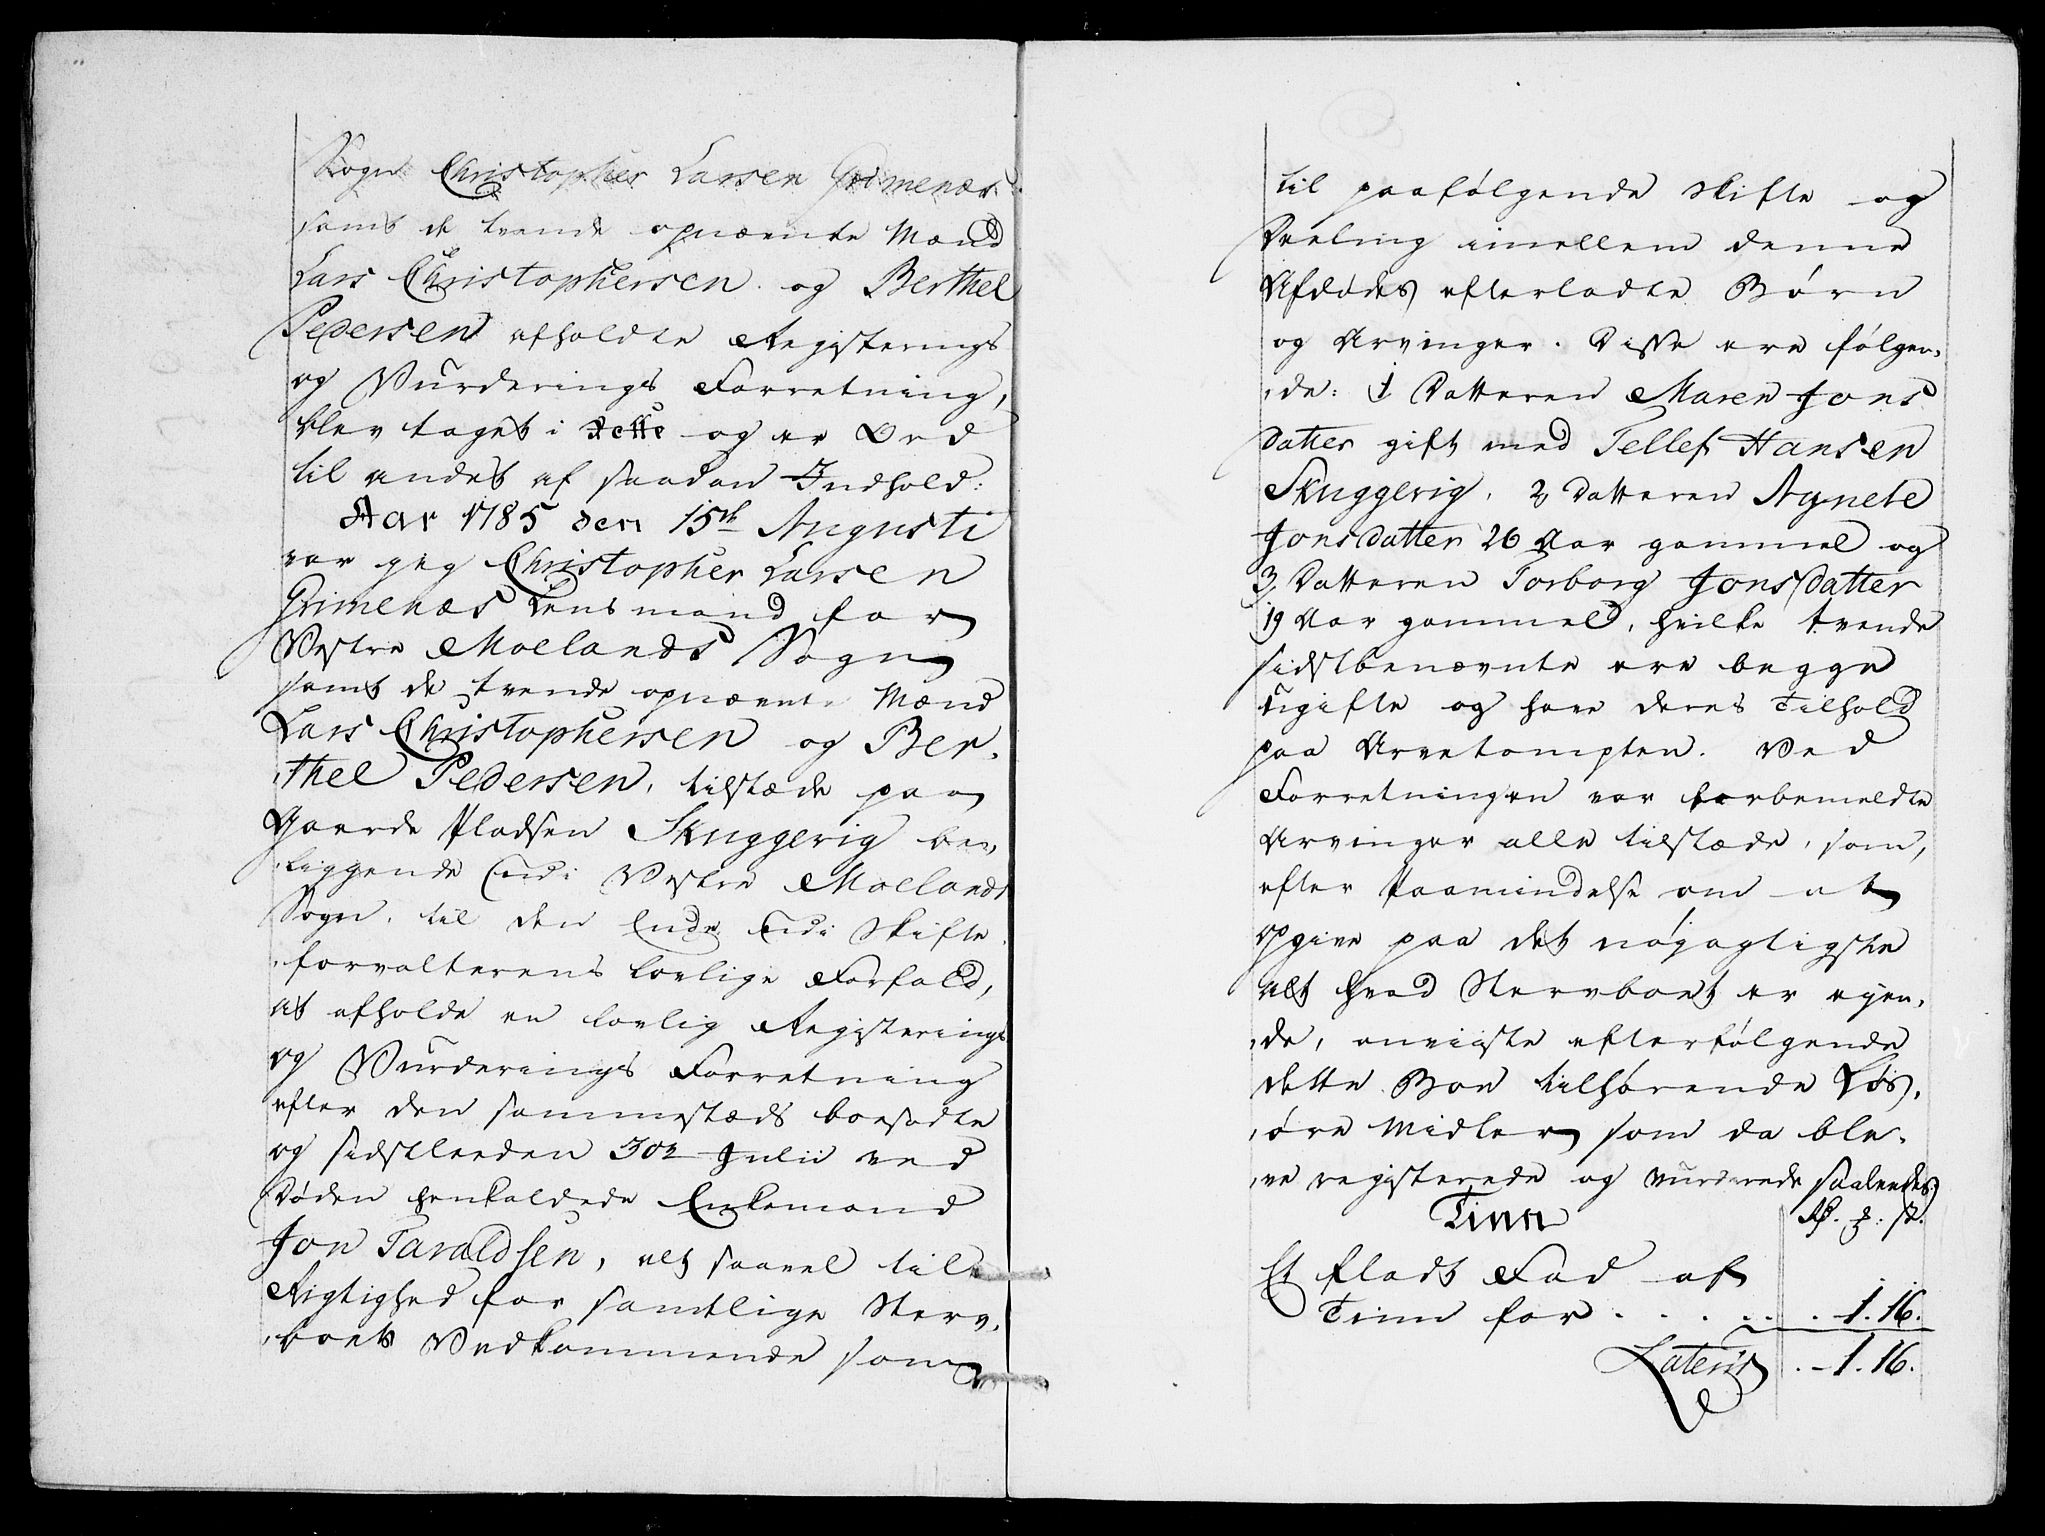 Sogn Christopher Larsen Grimenæs
samt de tvende opnævnte Mænd
Lars Christophersen og Berthel
Pedersen afholdte Registerings
og Vurderings Forretning,
blev taget i Rette og er Ord
til andet af saadan Indhold:
Aar 1785 den 15de Augusti
var jeg Christopher Larsen
Grimenæs Lensmand for
Vestre Moelands Sogn
samt de tvende opnævnte Mænd
Lars Christophersen og Ber-
thel Pedersen, tilstæde paa
Gaarde Pladsen Skuggerig be-
liggende udi Vestre Moelands
Sogn, til den Ende udi Skifte
forvalterens lovlige Forfald,
at afholde en lovlig Registerings
og Vurderings Forretning
efter den sammestæds boesadte
og sidstleeden 30te Julii ved
Døden henkaldede Enkemand
Jon Taraldsen, alt saavel til
Rigtighed for samtlige Sterv-
boets Vedkommende som
til paafølgende Skifte og
Deeling imellem denne
Afdødes efterladte Børn
og Arvinger. Disse ere følgen-
de: 1 Datteren Maren Jons
datter gift med Tellef Hansen
Skuggerig, 2, Datteren Agnete
Jonsdatter 26 Aar gammel og
3, Datteren Torborg Jonsdatter
19 Aar gammel, hvilke tvende
sidstbenævnte ere begge
ugifte og have deres Tilhold
paa Arvetompten. Ved
Forretningen var forbemeldte
Arvinger alle tilstæde, som,
efter Paamindelse om at
opgive paa det nøyagtigste
alt hvad Stervboet er eyen-
de, anviiste efterfølgende
dette Boe tilhørende Løs-
øre Midler, som da ble-
ve registerede og vurderede saaledes
Tinn Rd. ƶ. ß.
Et fladt Fad af
Tinn for . . . . . . 1. 16.
Lateris . - 1. 16.